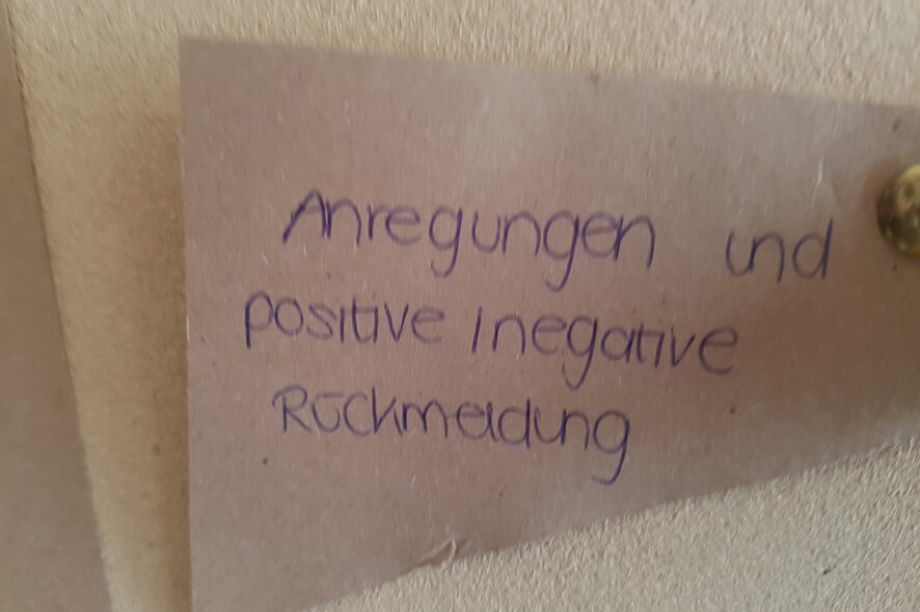 Anregungen und
positive / negative
Rückmeldung